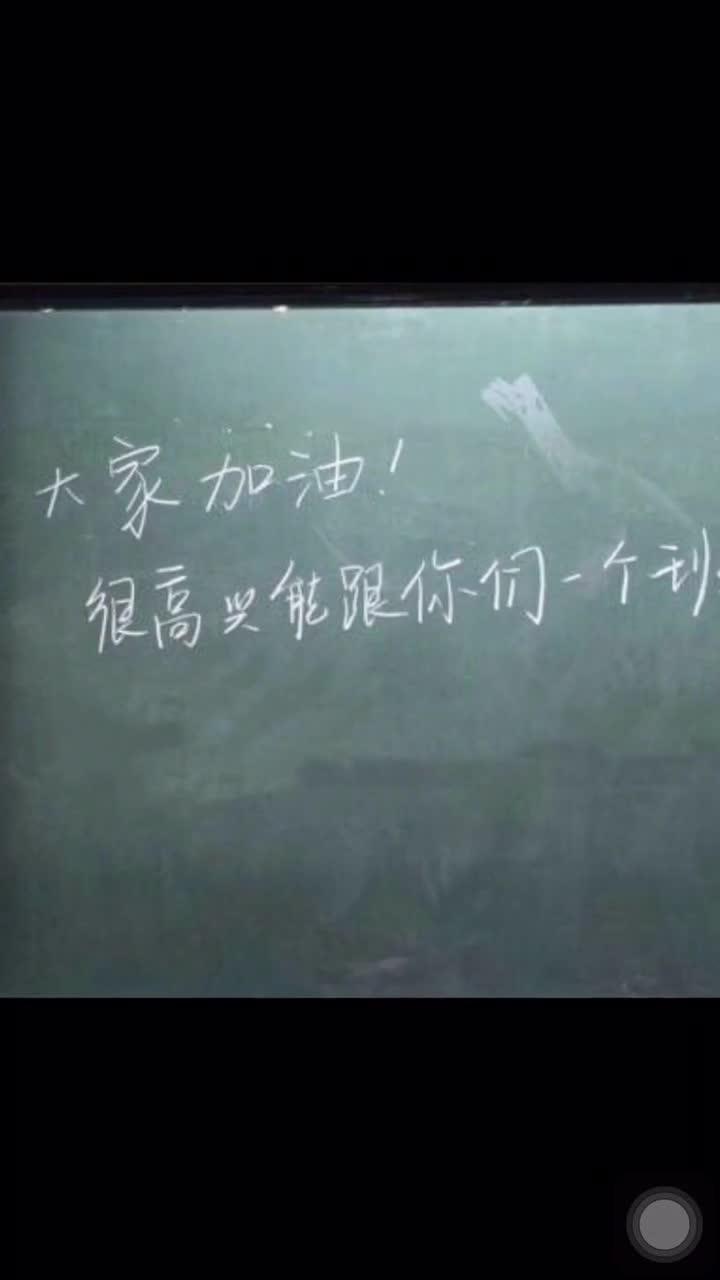 大家加油!
很高兴能跟你们一个